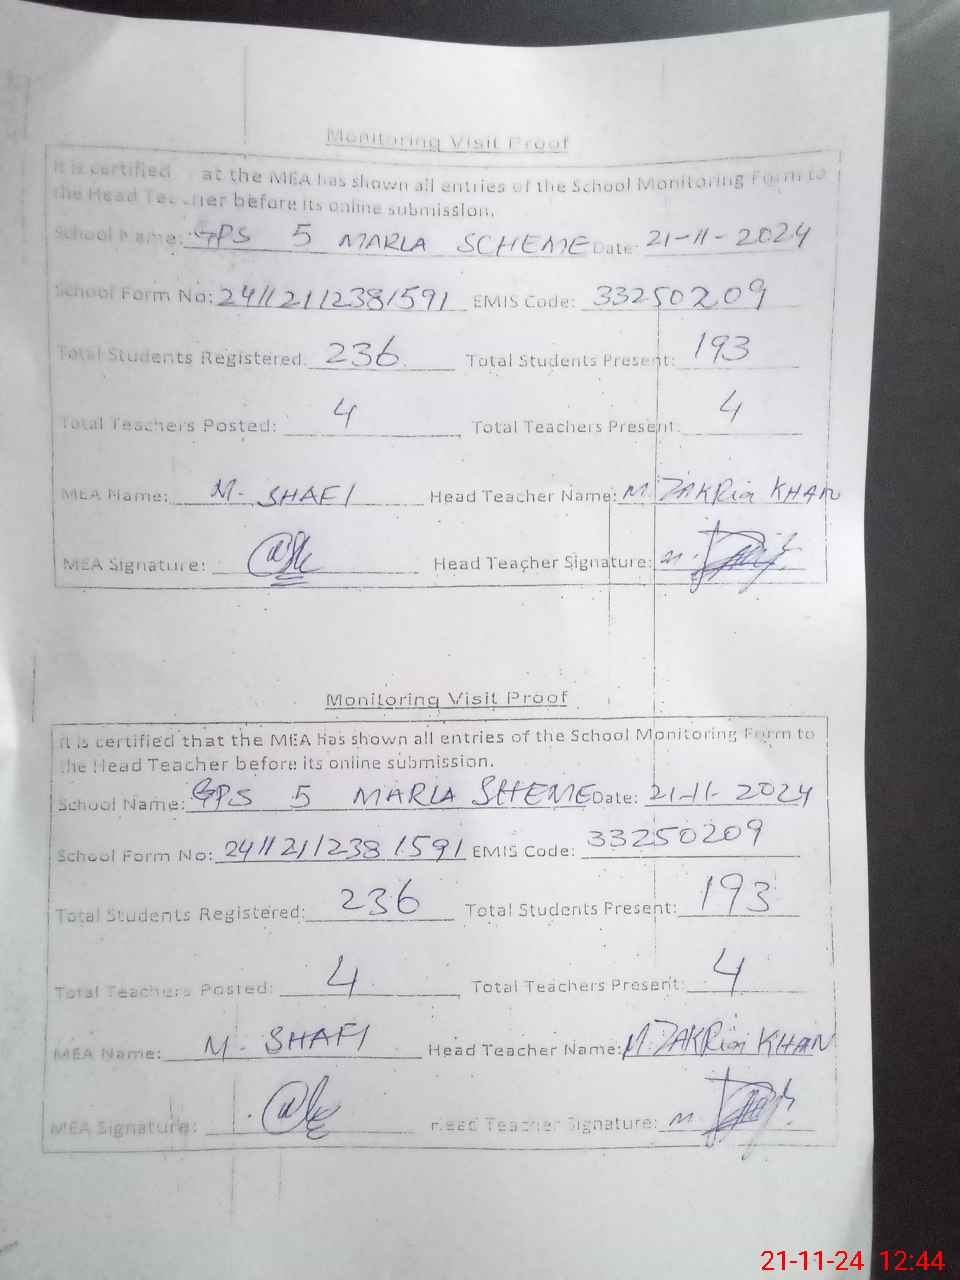 Monitoring Visit Proof
It is certified at the MEA has shown all entries of the School Monitoring Form to
the Head Teacher before its online submission.
School Name: GPS 5 MARLA SCHEME Date: 21-11-2024
School Form No: 24112112381591 EMIS Code: 33250209
Total Students Registered: 236 Total Students Present: 193
Total Teachers Posted: 4 Total Teachers Present: 4
MEA Name: M. SHAFI Head Teacher Name: M. ZAKRia KHAN
MEA Signature: Head Teacher Signature: M.
Monitoring Visit Proof
It is certified that the MEA has shown all entries of the School Monitoring Form to
the Head Teacher before its online submission.
School Name: GPS 5 MARLA SHEME Date: 21-11-2024
School Form No: 24112112381591 EMIS Code: 33250209
Total Students Registered: 236 Total Students Present: 193
Total Teachers Posted: 4 Total Teachers Present: 4
MEA Name: M. SHAFI Head Teacher Name: M. ZAKRia KHAN
MEA Signature: Head Teacher Signature: M.
21-11-24 12:44